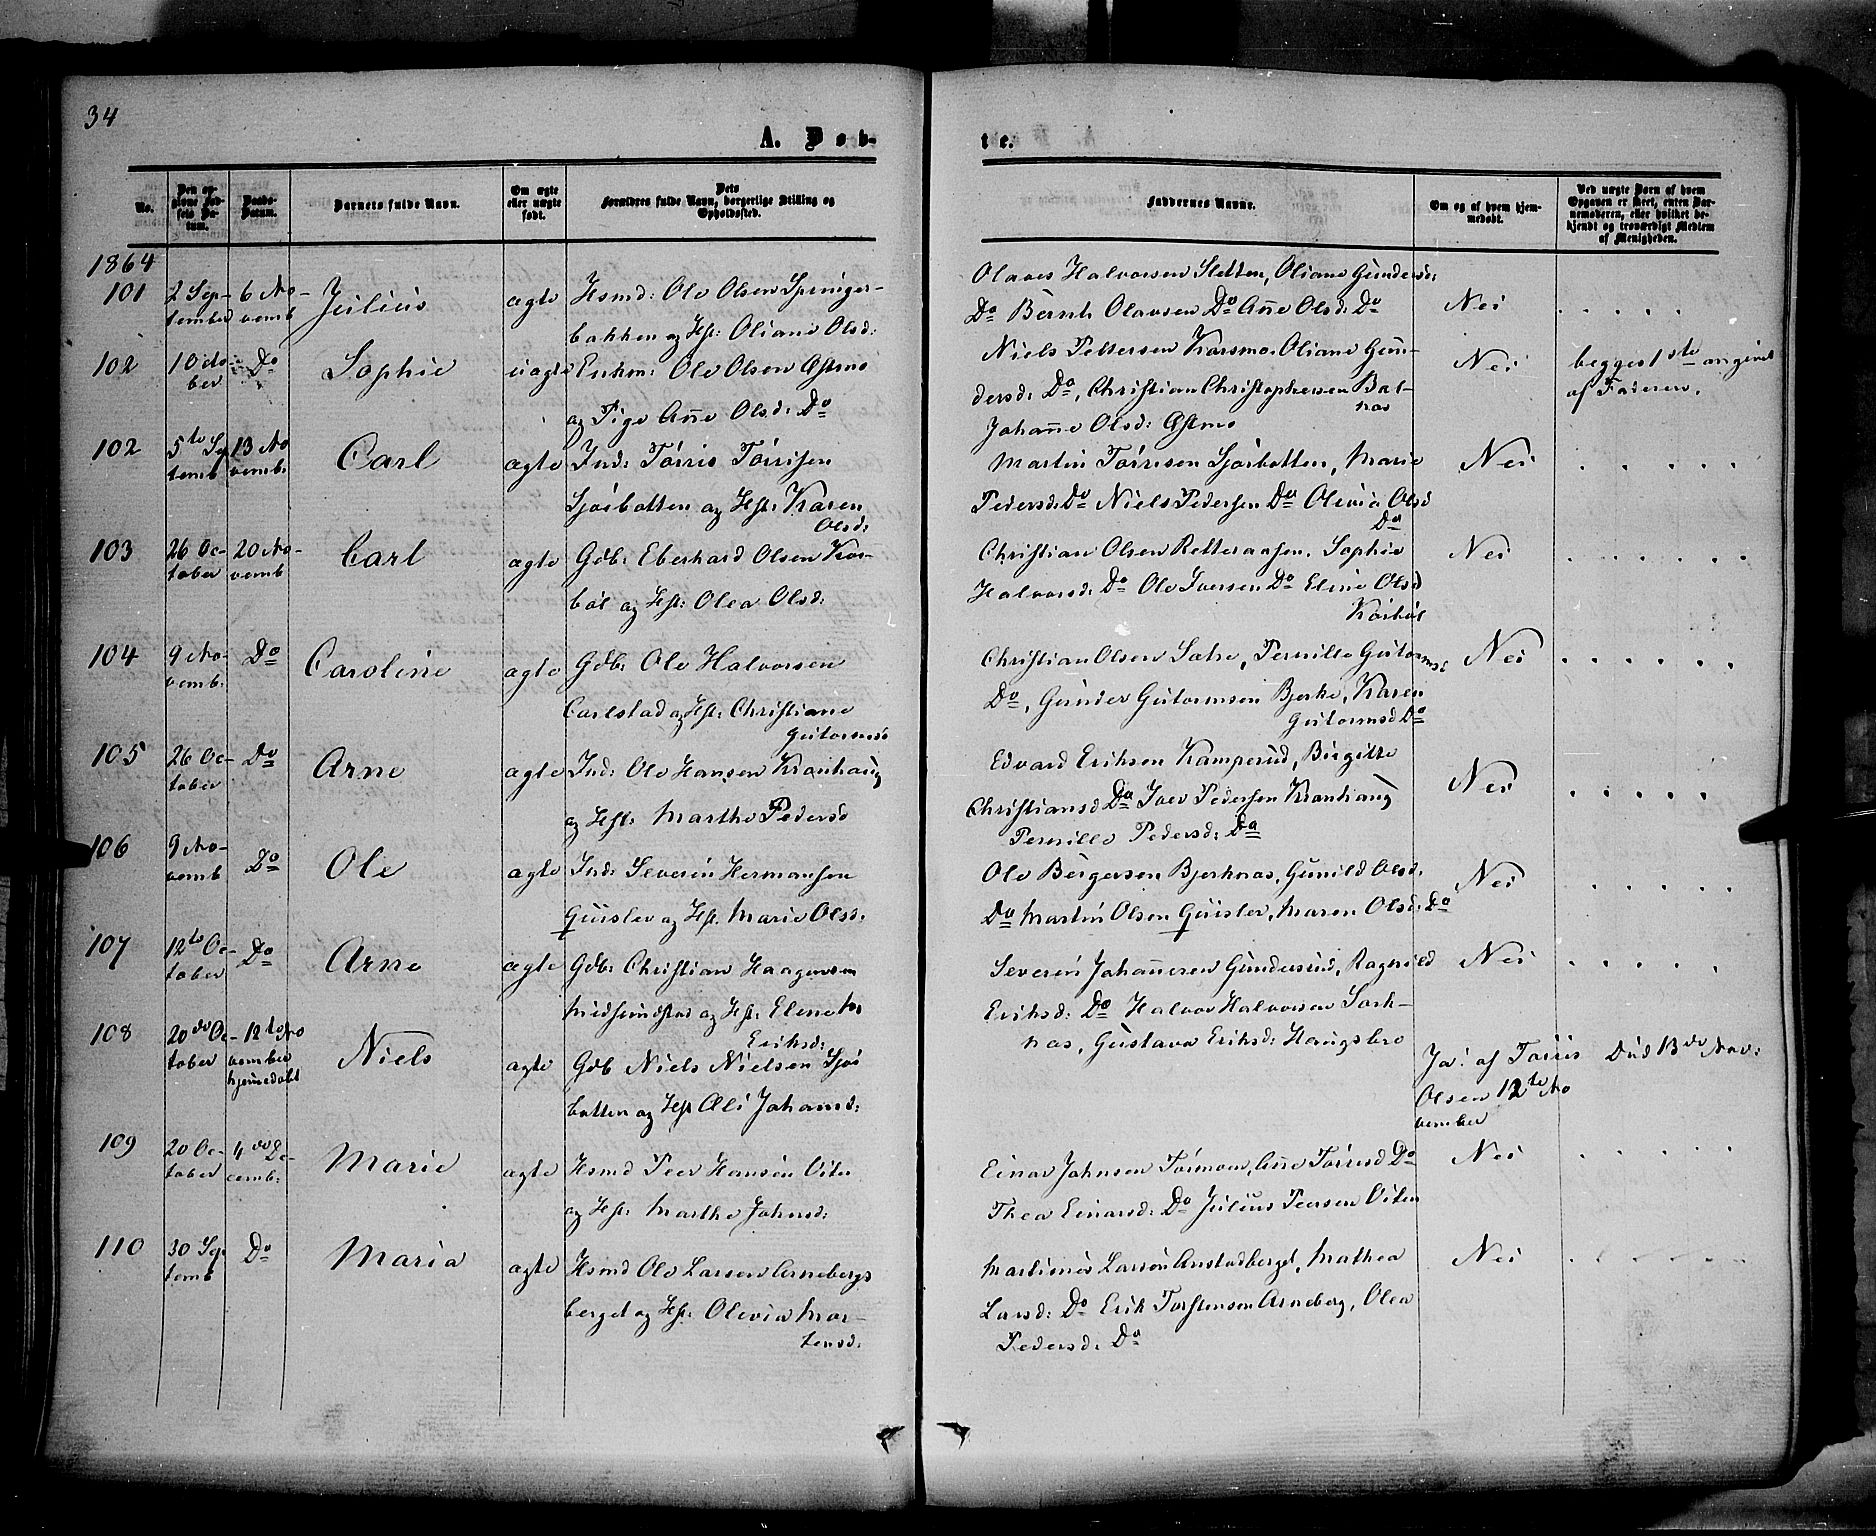 34
A. Døb-
te.
No.
Den opgivne Fødsels Datum.
Daabs-Datum.
Barnets fulde Navn.
Om ægte eller uægte født.
Dets Forældres fulde Navn, borgerlige Stilling og Opholdssted.
Faddernes Navne.
Om og af hvem hjemmedøbt.
Ved uægte Barn af hvem Opgaven er skeet, enten Barnemoderen, eller hvilket bekjendt og troværdigt Medlem af Menigheden.
1864
101 2 Sep- 6 No- Julius ægte Hsmd: Ole Olsen Springer-
tember vemb bakken og Hst: Oliane Olsd:
Olaves Halvorsen Sletten, Oliane Gundersd:
Do Bernh Olausen Do Añe Olsd: Do
Nei . . . . .
102 10 Octo- Do Sophie uægte Enkm: Ole Olsen Østmo
ber og Pige Añe Olsd: Do
Niels Pettersen Karsmo. Oliane Gun-
dersd: Do, Christian Christophersen Bal-
nas
Johañe Olsd: Østmo
Nei begges 1ste angivet
af Faderen.
102 5te Sep 13 No Carl ægte Ind: Torris Torrisen
temb vemb: Sjøibotten og Hst: Karen
Olsd:
Martin Torrisen Sjøibotten, Marie
Pedersd: Do Niels Pedersen Do Olivia Olsd
Do
Nei . . . . . .
103 26 Oc- 20 No- Carl ægte Gdb: Eberhard Olsen Kor-
tober vemb bøl og Hst: Olea Olsd:
Christian Olsen Retteraasen. Sophie
Halvorsd: Do Ole Iversen Do Eline Olsd
Korbøl
Nei . . . . . .
104 9 No- Do Caroline ægte Gdb: Ole Halvorsen
vemb: Carlstad og Hst: Christiane
Gutormsd
Christian Olsen Satre, Pernille Gutormsd
Do, Gunder Gutormsen Bjerke, Karen
Gutormsd Do
Nei . . . . . .
105 26 Oc- Do Arne ægte Ind: Ole Hansen Kranhaug
tober og Hst: Marthe Pedersd
Edvard Eriksen Kamperud, Birgitte
Christiansd Do Iver Pedersen Kranhaug
Pernille Pedersd: Do
Nei . . . . .
106 9 No- Do Ole ægte Ind: Severin Hermansen
vemb Quisler og Hst. Marie Olsd:
Ole Børgersen Bjerknas, Gunild Olsd.
Do Martin Olsen Quisler, Maren Olsd: Do
Nei . . . . .
107 12te Oc- Do Arne ægte Gdb: Christian Haagensen
tober Midsundstad og Hst: Eline M.
Eriksd:
Severin Johañesen Gundersrud, Ragnild
Eriksd: Do Halvor Halvorsen Sark-
nas, Gustava Eriksd: Haugsbro
Nei . . . . .
108 20de Oc- 12te No Niels ægte Gdb Niels Nielsen Sjøi
tober vember
hjemedøbt
botten og Hst Oli Johansd:
Ja: af Torris
Olsen 12te No
vember
Død 13de Nov:
109 20 Oc- 4de De- Marie ægte Hsmd Peer Hansen Viter
tober cemb: og Hst: Marthe Johnsd:
Einar Johnsen Tormoen, Añe Torrisd Do
Thea Einarsd: Do Julius Peersen Viten
Nei . . . . .
110 30 Sep Do Maria ægte Hsmd Ole Larsen Arnebergs
temb berget og Hst: Olivia Mor-
tensd:
Martinus Larsen Anstadberget, Mathea
Larsd: Do Erik Torstensen Arneberg, Olea
Pedersd: Do
Nei . . . . . .